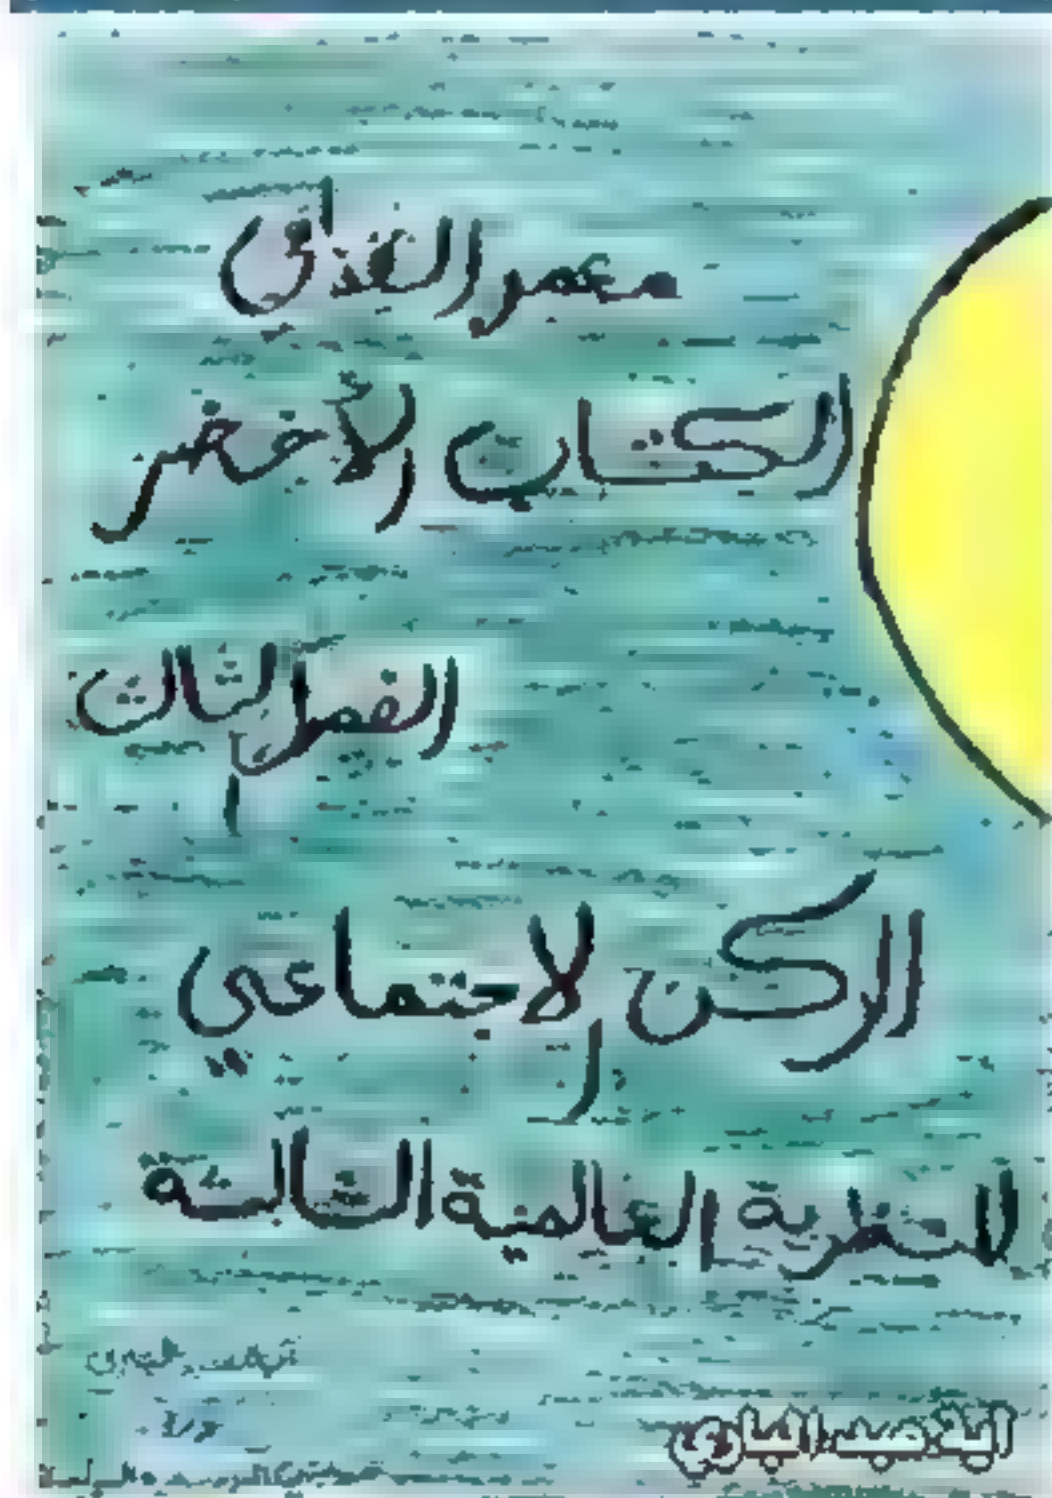 معمر القذافي
الكتاب الأخضر
الفصل الثالث
الركن الاجتماعي
للنظرية العالمية الثالثة